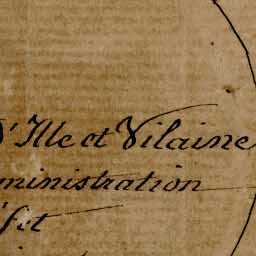 D'Ille et Vilaine
ministration